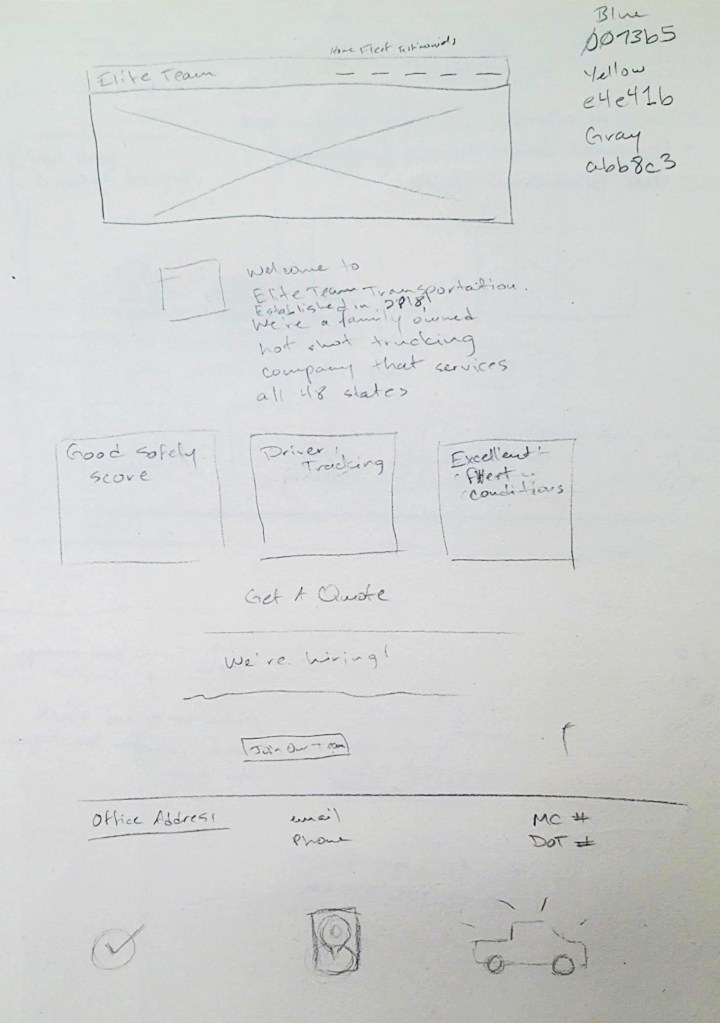 Blue
0073b5
Yellow
e4e41b
Gray
abb8c3
Home Fleet Testimonials
Elite Team
Welcome to
Elite Team Transportaition.
Established in 2018!
We're a family owned
hot shot trucking
company that services
all 48 states
Good Safety
score
Driver
Tracking
Excellent
fleet
conditions
Get A Quote
We're hiring!
Join Our Team
Office Address
email
Phone
MC #
DOT #